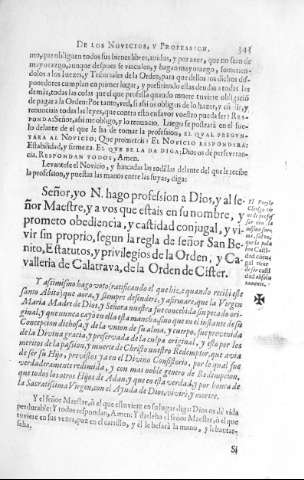 DE LOS NOVICIOS, Y PROFESSION. 341
mo, que obliguen todos sus bienes libres, avidos, y por aver, que no sean de
mayorazgo, aunque despues se vinculen, y hagan mayorazgo, sometien-
dolos a los Iuezes, y Tribunales de la Orden, para que dellos los dichos dis-
ponedores cumplan en primer lugar, y prefiriendo ellas deudas a todas las
demas, todas las cosas que el que professa quando muere tuviere obligació
de pagar a la Orden: Por tanto ved, si assi os obligais de lo hazer, y cúplir, y
renunciais todas las leyes, que contra esto en favor vuestro puedan ser? RES-
PONDA: Señor, assi me obligo, y lo renuncio. Luego se postrará en el sue-
lo delante de el que le ha de tomar la profession, EL QVAL PREGVN-
TARA AL NOVICIO; Que prometeis? EL NOVICIO RESPONDERA:
Estabilidad, y firmeza. ES QVE SE LA DA DIGA; Dios os dé perseveran-
cia, RESPONDAN TODOS, Amen.
Levantese el Novicio, y hincadas las rodillas delante del que le recibe
la profession, y puestas las manos entre las suyas, diga:
Señor, yo N. hago profession a Dios, y al se-
ñor Maestre, y a vos que estais en su nombre, y
prometo obediencia, y castidad conjugal, y vi-
vir sin proprio, segun la regla de señor San Be-
nito, Estatutos, y privilegios de la Orden, y Ca-
valleria de Calatrava, de la Orden de Cister.
El Freyle
Clerigo
Y assimismo hago voto, ratificando el que hize, quando recibi este
santo Abito) que aora, y siempre defenderé, y afirmaré, que la Virgen
Maria Madre de Dios, y Señora nuestra fue concebida sin pecado ori-
ginal, y que nunca cayó en ella esta mancha, sino que en el instante de su
Concepcion dichosa, y de la union de su alma, y cuerpo, fue prevenida
de la Divina gracia, y preservada de la culpa original, y esto por los
meritos de la passion, y muerte de Christo nuestro Redemptor, que avia
de ser su Hijo, previstos ya en el Divino Consistorio, por lo qual fue
verdaderamente redimida, y con mas noble genero de Redempcion,
que todos los otros Hijos de Adan; y que en esta verdad, y por honra de
la Sacratissima Virgen, con el Ayuda de Dios, viviré, y moriré.
Y el señor Maestre, ó el que estuviere en su lugar diga: Dios os dé vida
perdurable: Y todos respondan, Amen: Y darleha el señor Maestre, ó el que
tuviere en sus vezes, paz en el carrillo, y él le besará la mano, y levantar-
seha.